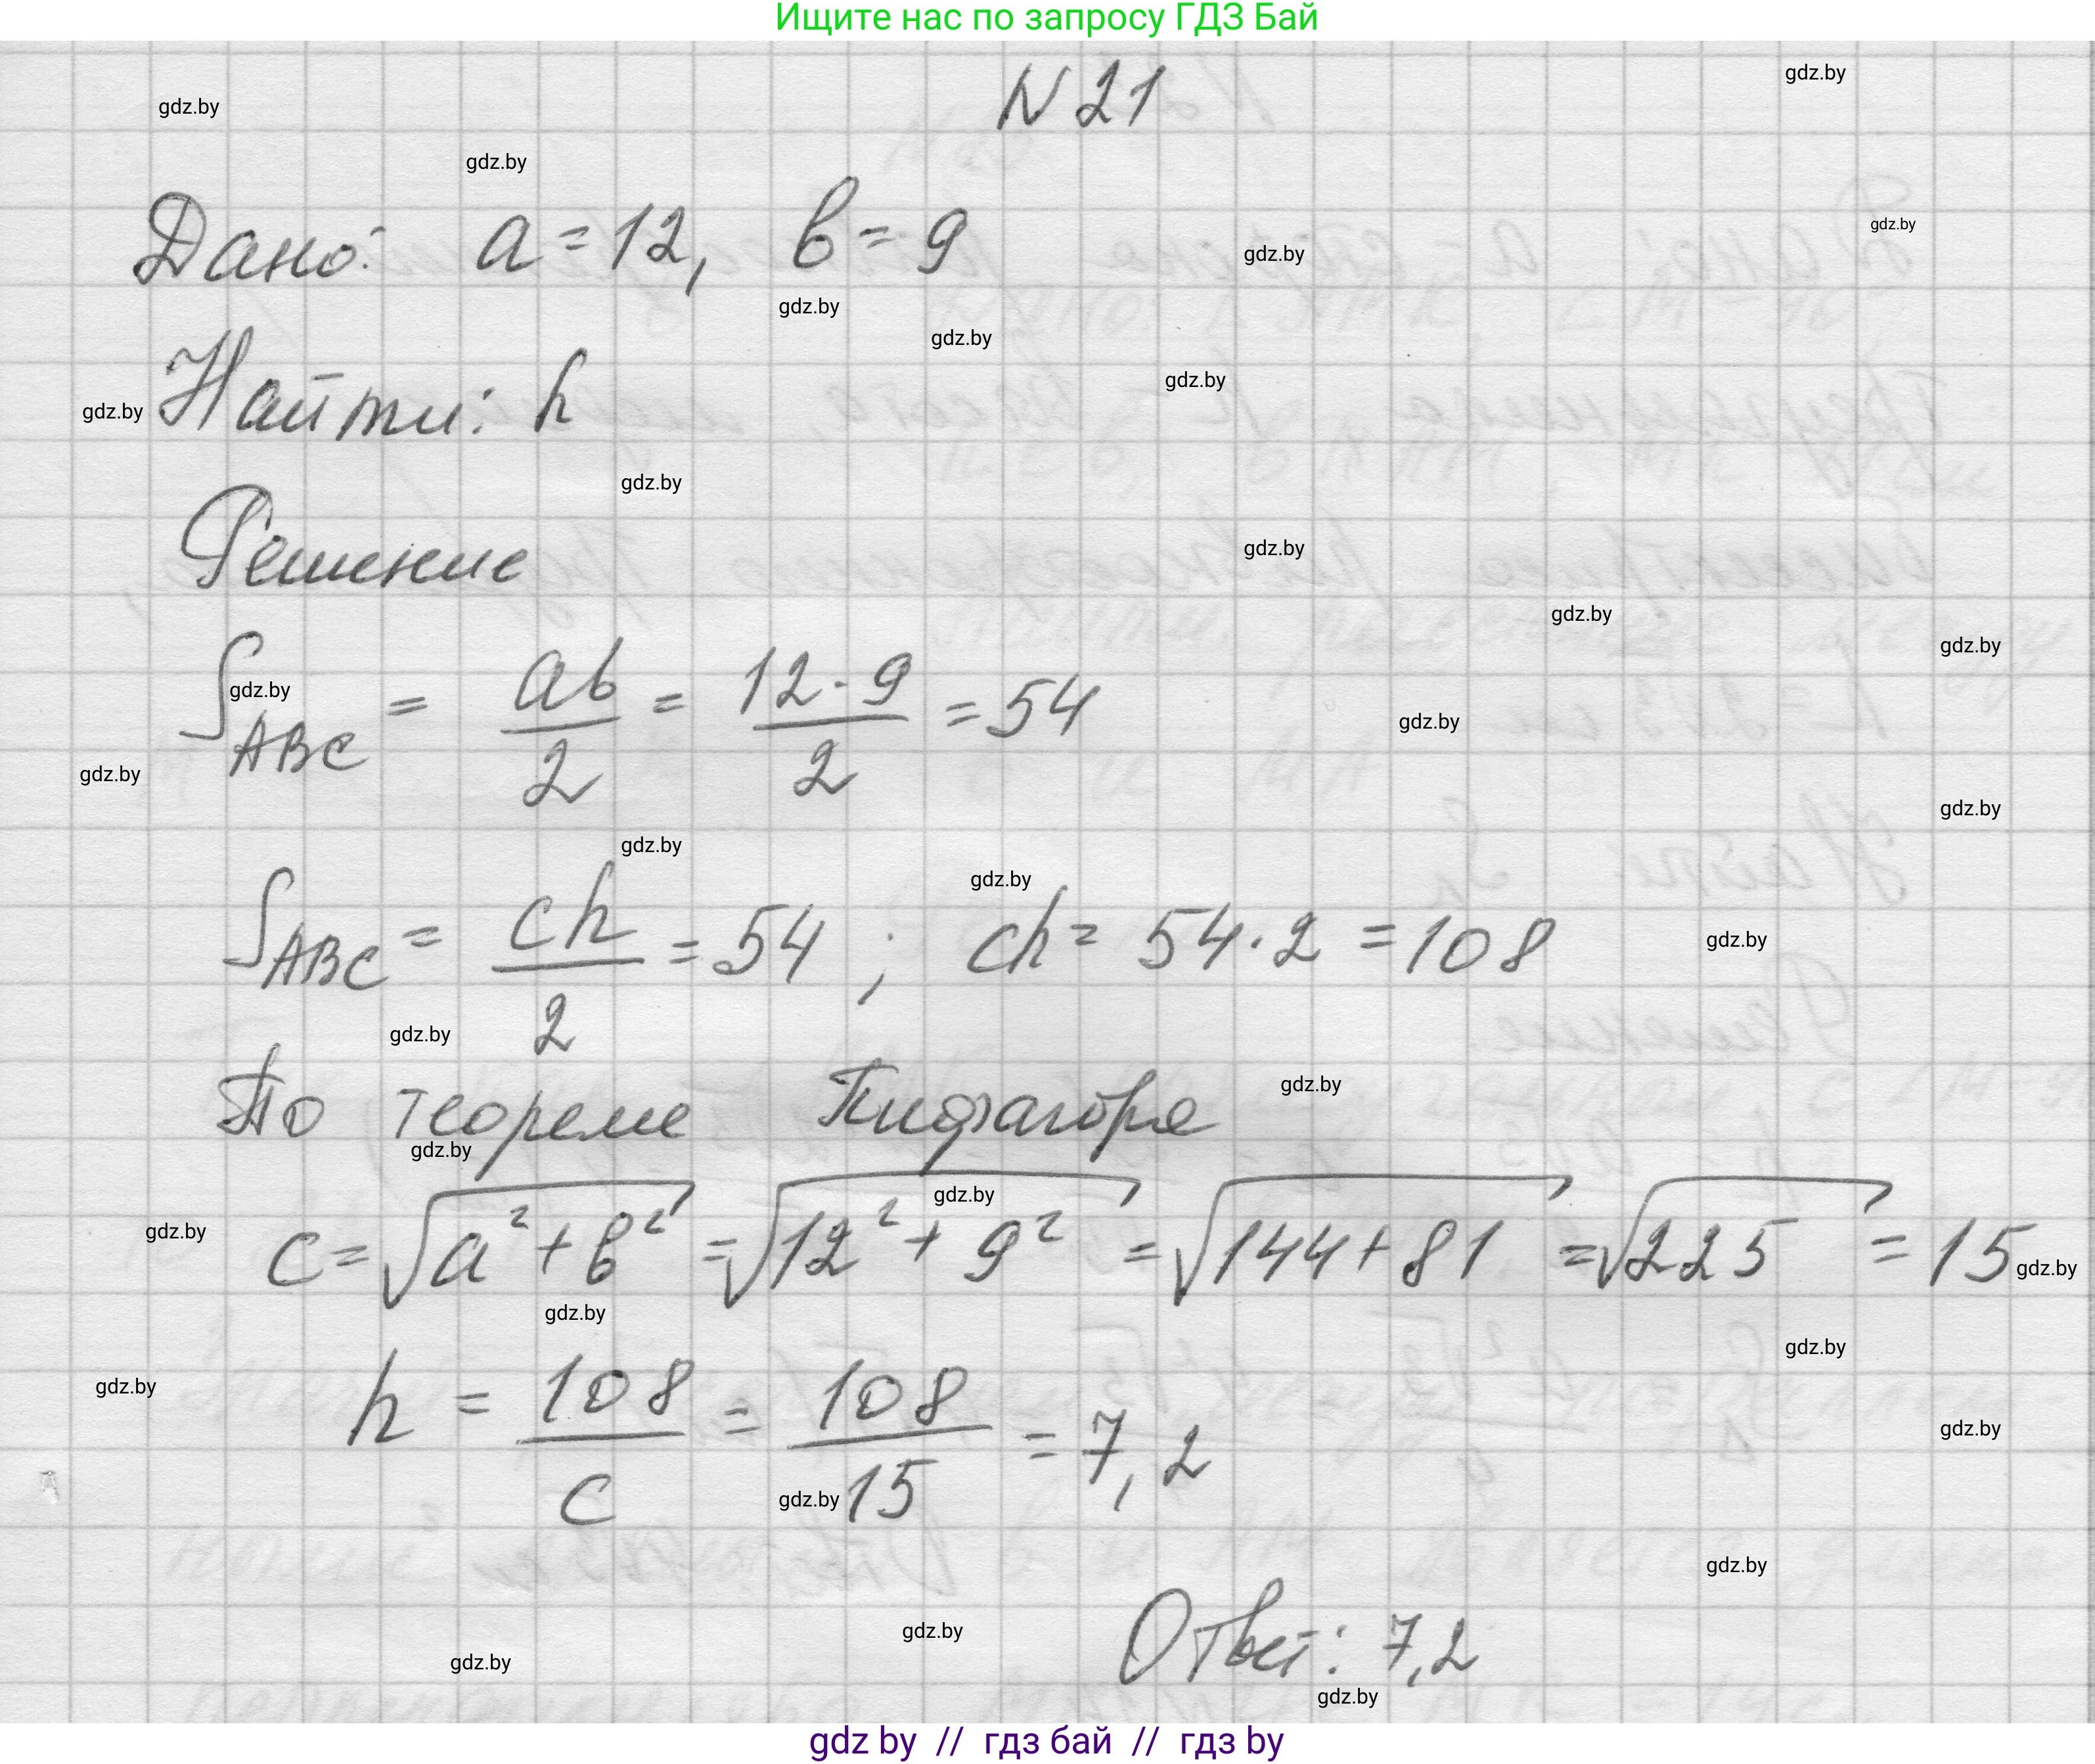 Ищите нас по запросу ГДЗ Бай
gdz.by
N 21
gdz.by
gdz.by
Дано: a = 12, b = 9
gdz.by
gdz.by
gdz.by
gdz.by
gdz.by
Найти: h
gdz.by
gdz.by
Решение
gdz.by
gdz.by
gdz.by
S_ABC = ab/2 = 12 · 9/2 = 54
gdz.by
gdz.by
gdz.by
gdz.by
gdz.by
gdz.by
S_ABC = ch/2 = 54 ; ch = 54 · 2 = 108
gdz.by
gdz.by
По теореме Пифагора
gdz.by
gdz.by
gdz.by
gdz.by
c = √a² + b² = √12² + 9² = √144 + 81 = √225 = 15
gdz.by
gdz.by
gdz.by
gdz.by
h = 108/c = 108/15 = 7,2
gdz.by
gdz.by
gdz.by
Ответ: 7,2
gdz.by
gdz.by
gdz.by
gdz by // гдз бай // гдз by